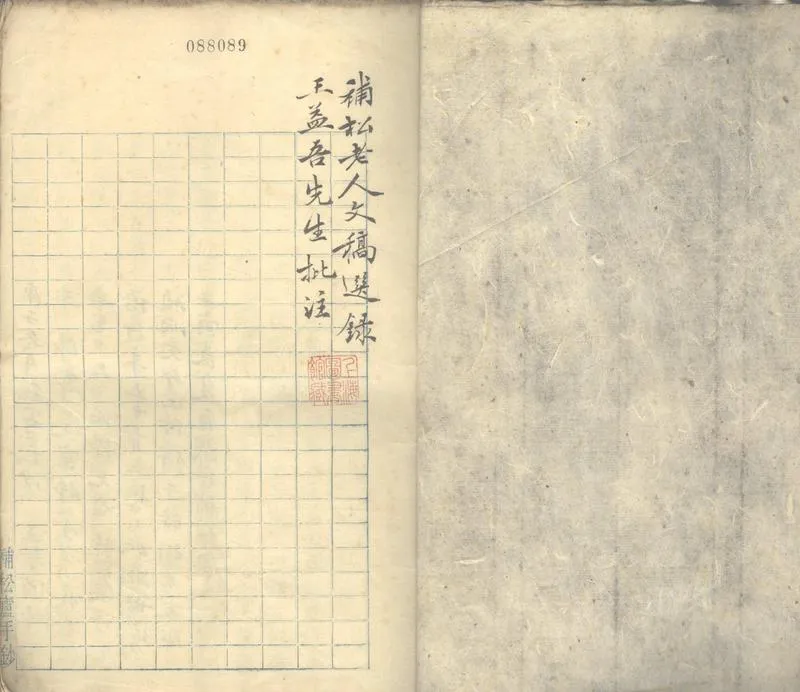 088089
補松老人文稿選錄
王益吾先生批注
上海圖書館藏
補松廬手鈔